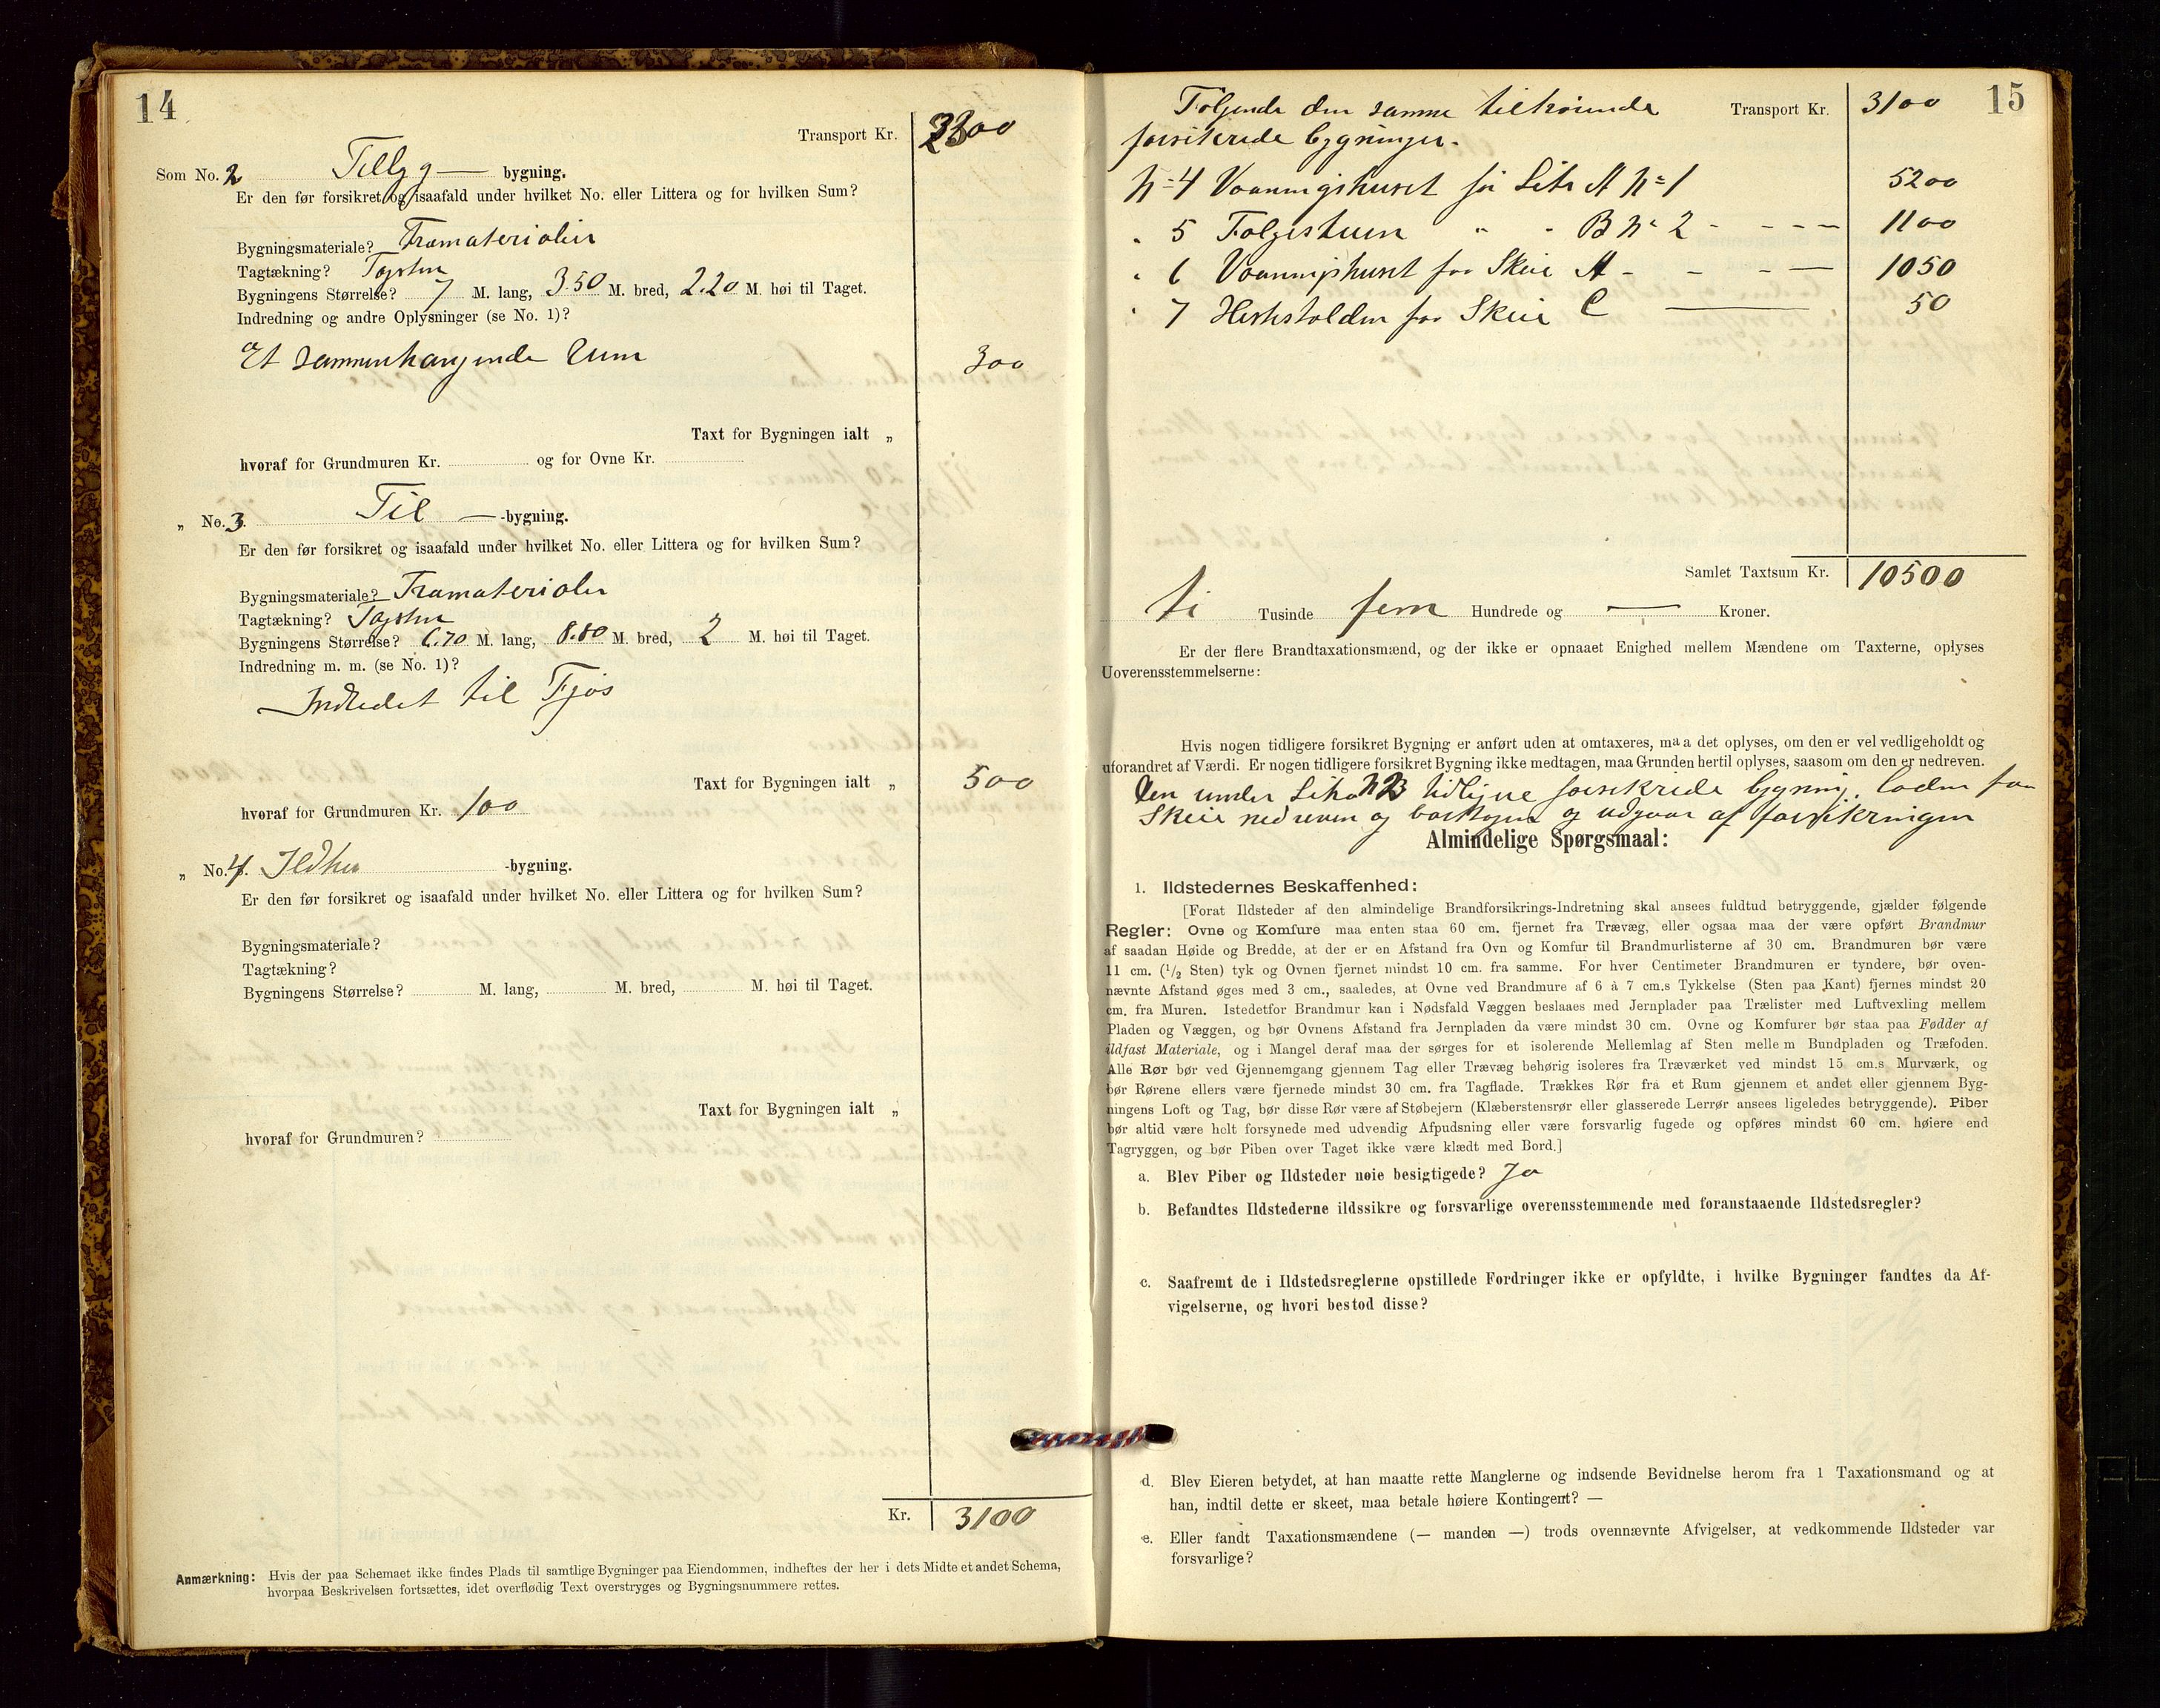 14
Transport Kr. 2300
Som No. 2 Tilbyg — bygning.
Er den før forsikret og isaafald under hvilket No. eller Littera og for hvilken Sum?
Bygningsmateriale? Træmaterialier
Tagtækning? Tagsten
Bygningens Størrelse? 7 M. lang, 3.50 M. bred, 2.20 M. høi til Taget.
Indredning og andre Oplysninger (se No. 1)?
Et sammenhængende Rum 300
Taxt for Bygningen ialt „
hvoraf for Grundmuren Kr. og for Ovne Kr.
„ No. 3. Til — -bygning.
Er den før forsikret og isaafald under hvilket No. eller Littera og for hvilken Sum?
Bygningsmateriale? Træmaterialier
Tagtækning? Tagsten
Bygningens Størrelse? 6.70 M. lang, 8.80 M. bred, 2 M. høi til Taget.
Indredning m. m. (se No. 1)?
Indredet til Fjøs
Taxt for Bygningen ialt „ 500
hvoraf for Grundmuren Kr. 100
„ No. 4. Ildhus -bygning.
Er den før forsikret og isaafald under hvilket No. eller Littera og for hvilken Sum?
Bygningsmateriale?
Tagtækning?
Bygningens Størrelse? M. lang, M. bred, M. høi til Taget.
Taxt for Bygningen ialt „
hvoraf for Grundmuren?
Kr. 3100
Anmærkning: Hvis der paa Schemaet ikke findes Plads til samtlige Bygninger paa Eiendommen, indheftes der her i dets Midte et andet Schema,
hvorpaa Beskrivelsen fortsættes, idet overflødig Text overstryges og Bygningsnummere rettes.
15
Følgende den samme tilhørende Transport Kr. 3100
forsikrede bygninger.
N=4 Vaaningshuset før Litr A N=1 5200
" 5 Følgestuen " " B N= 2 - - - - 1100
" 6 Vaaningshuset paa Skeie A - - - — 1050
" 7 Hestestolden paa Skeie C — 50
Samlet Taxtsum Kr. 10500
ti Tusinde fem Hundrede og — Kroner.
Er der flere Brandtaxationsmænd, og der ikke er opnaaet Enighed mellem Mændene om Taxterne, oplyses
Uoverensstemmelserne:
Hvis nogen tidligere forsikret Bygning er anført uden at omtaxeres, maa det oplyses, om den er vel vedligeholdt og
uforandret af Værdi. Er nogen tidligere forsikret Bygning ikke medtagen, maa Grunden hertil oplyses, saasom om den er nedreven.
Den under Litra B tidligere forsikrede bygning, laden paa
Skeie nedreven og borttagen og udgaar af forsikringen
Almindelige Spørgsmaal:
1. Ildstedernes Beskaffenhed:
[Forat Ildsteder af den almindelige Brandforsikrings-Indretning skal ansees fuldtud betryggende, gjælder følgende
Regler: Ovne og Komfure maa enten staa 60 cm. fjernet fra Trævæg, eller ogsaa maa der være opført Brandmur
af saadan Høide og Bredde, at der er en Afstand fra Ovn og Komfur til Brandmurlisterne af 30 cm. Brandmuren bør være
11 cm. (1/2 Sten) tyk og Ovnen fjernet mindst 10 cm. fra samme. For hver Centimeter Brandmuren er tyndere, bør oven-
nævnte Afstand øges med 3 cm., saaledes, at Ovne ved Brandmure af 6 à 7 cm.s Tykkelse (Sten paa Kant) fjernes mindst 20
cm. fra Muren. Istedetfor Brandmur kan i Nødsfald Væggen beslaaes med Jernplader paa Trælister med Luftvexling mellem
Pladen og Væggen, og bør Ovnens Afstand fra Jernpladen da være mindst 30 cm. Ovne og Komfurer bør staa paa Fødder af
ildfast Materiale, og i Mangel deraf maa der sørges for et isolerende Mellemlag af Sten mellem Bundpladen og Træfoden.
Alle Rør bør ved Gjennemgang gjennem Tag eller Trævæg behørig isoleres fra Træværket ved mindst 15 cm.s Murværk, og
bør Rørene ellers være fjernede mindst 30 cm. fra Tagflade. Trækkes Rør fra et Rum gjennem et andet eller gjennem Byg-
ningens Loft og Tag, bør disse Rør være af Støbejern (Klæberstensrør eller glasserede Lerrør ansees ligeledes betryggende). Piber
bør altid være helt forsynede med udvendig Afpudsning eller være forsvarlig fugede og opføres mindst 60 cm. høiere end
Tagryggen, og bør Piben over Taget ikke være klædt med Bord.]
a. Blev Piber og Ildsteder nøie besigtigede? Ja
b. Befandtes Ildstederne ildssikre og forsvarlige overensstemmende med foranstaaende Ildstedsregler?
c. Saafremt de i Ildstedsreglerne opstillede Fordringer ikke er opfyldte, i hvilke Bygninger fandtes da Af-
vigelserne, og hvori bestod disse?
d. Blev Eieren betydet, at han maatte rette Manglerne og indsende Bevidnelse herom fra 1 Taxationsmand og at
han, indtil dette er skeet, maa betale høiere Kontingent? —
e. Eller fandt Taxationsmændene (— manden —) trods ovennævnte Afvigelser, at vedkommende Ildsteder var
forsvarlige?